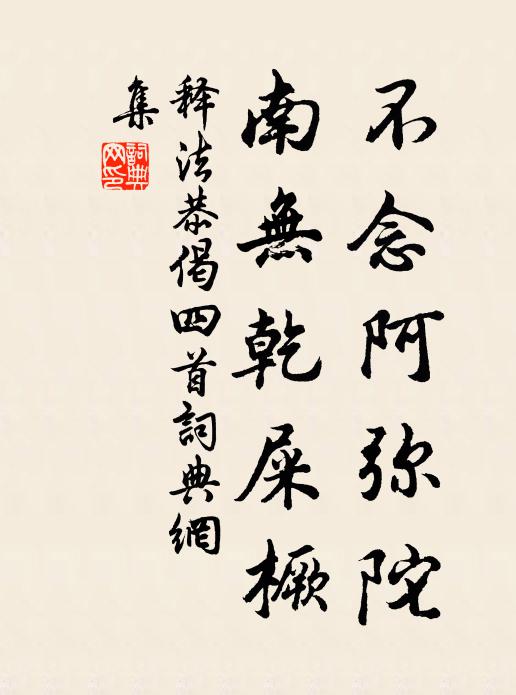 不念阿弥陀
南無乾屎橛
释法恭偈四首詞典網
集
詞典
网印